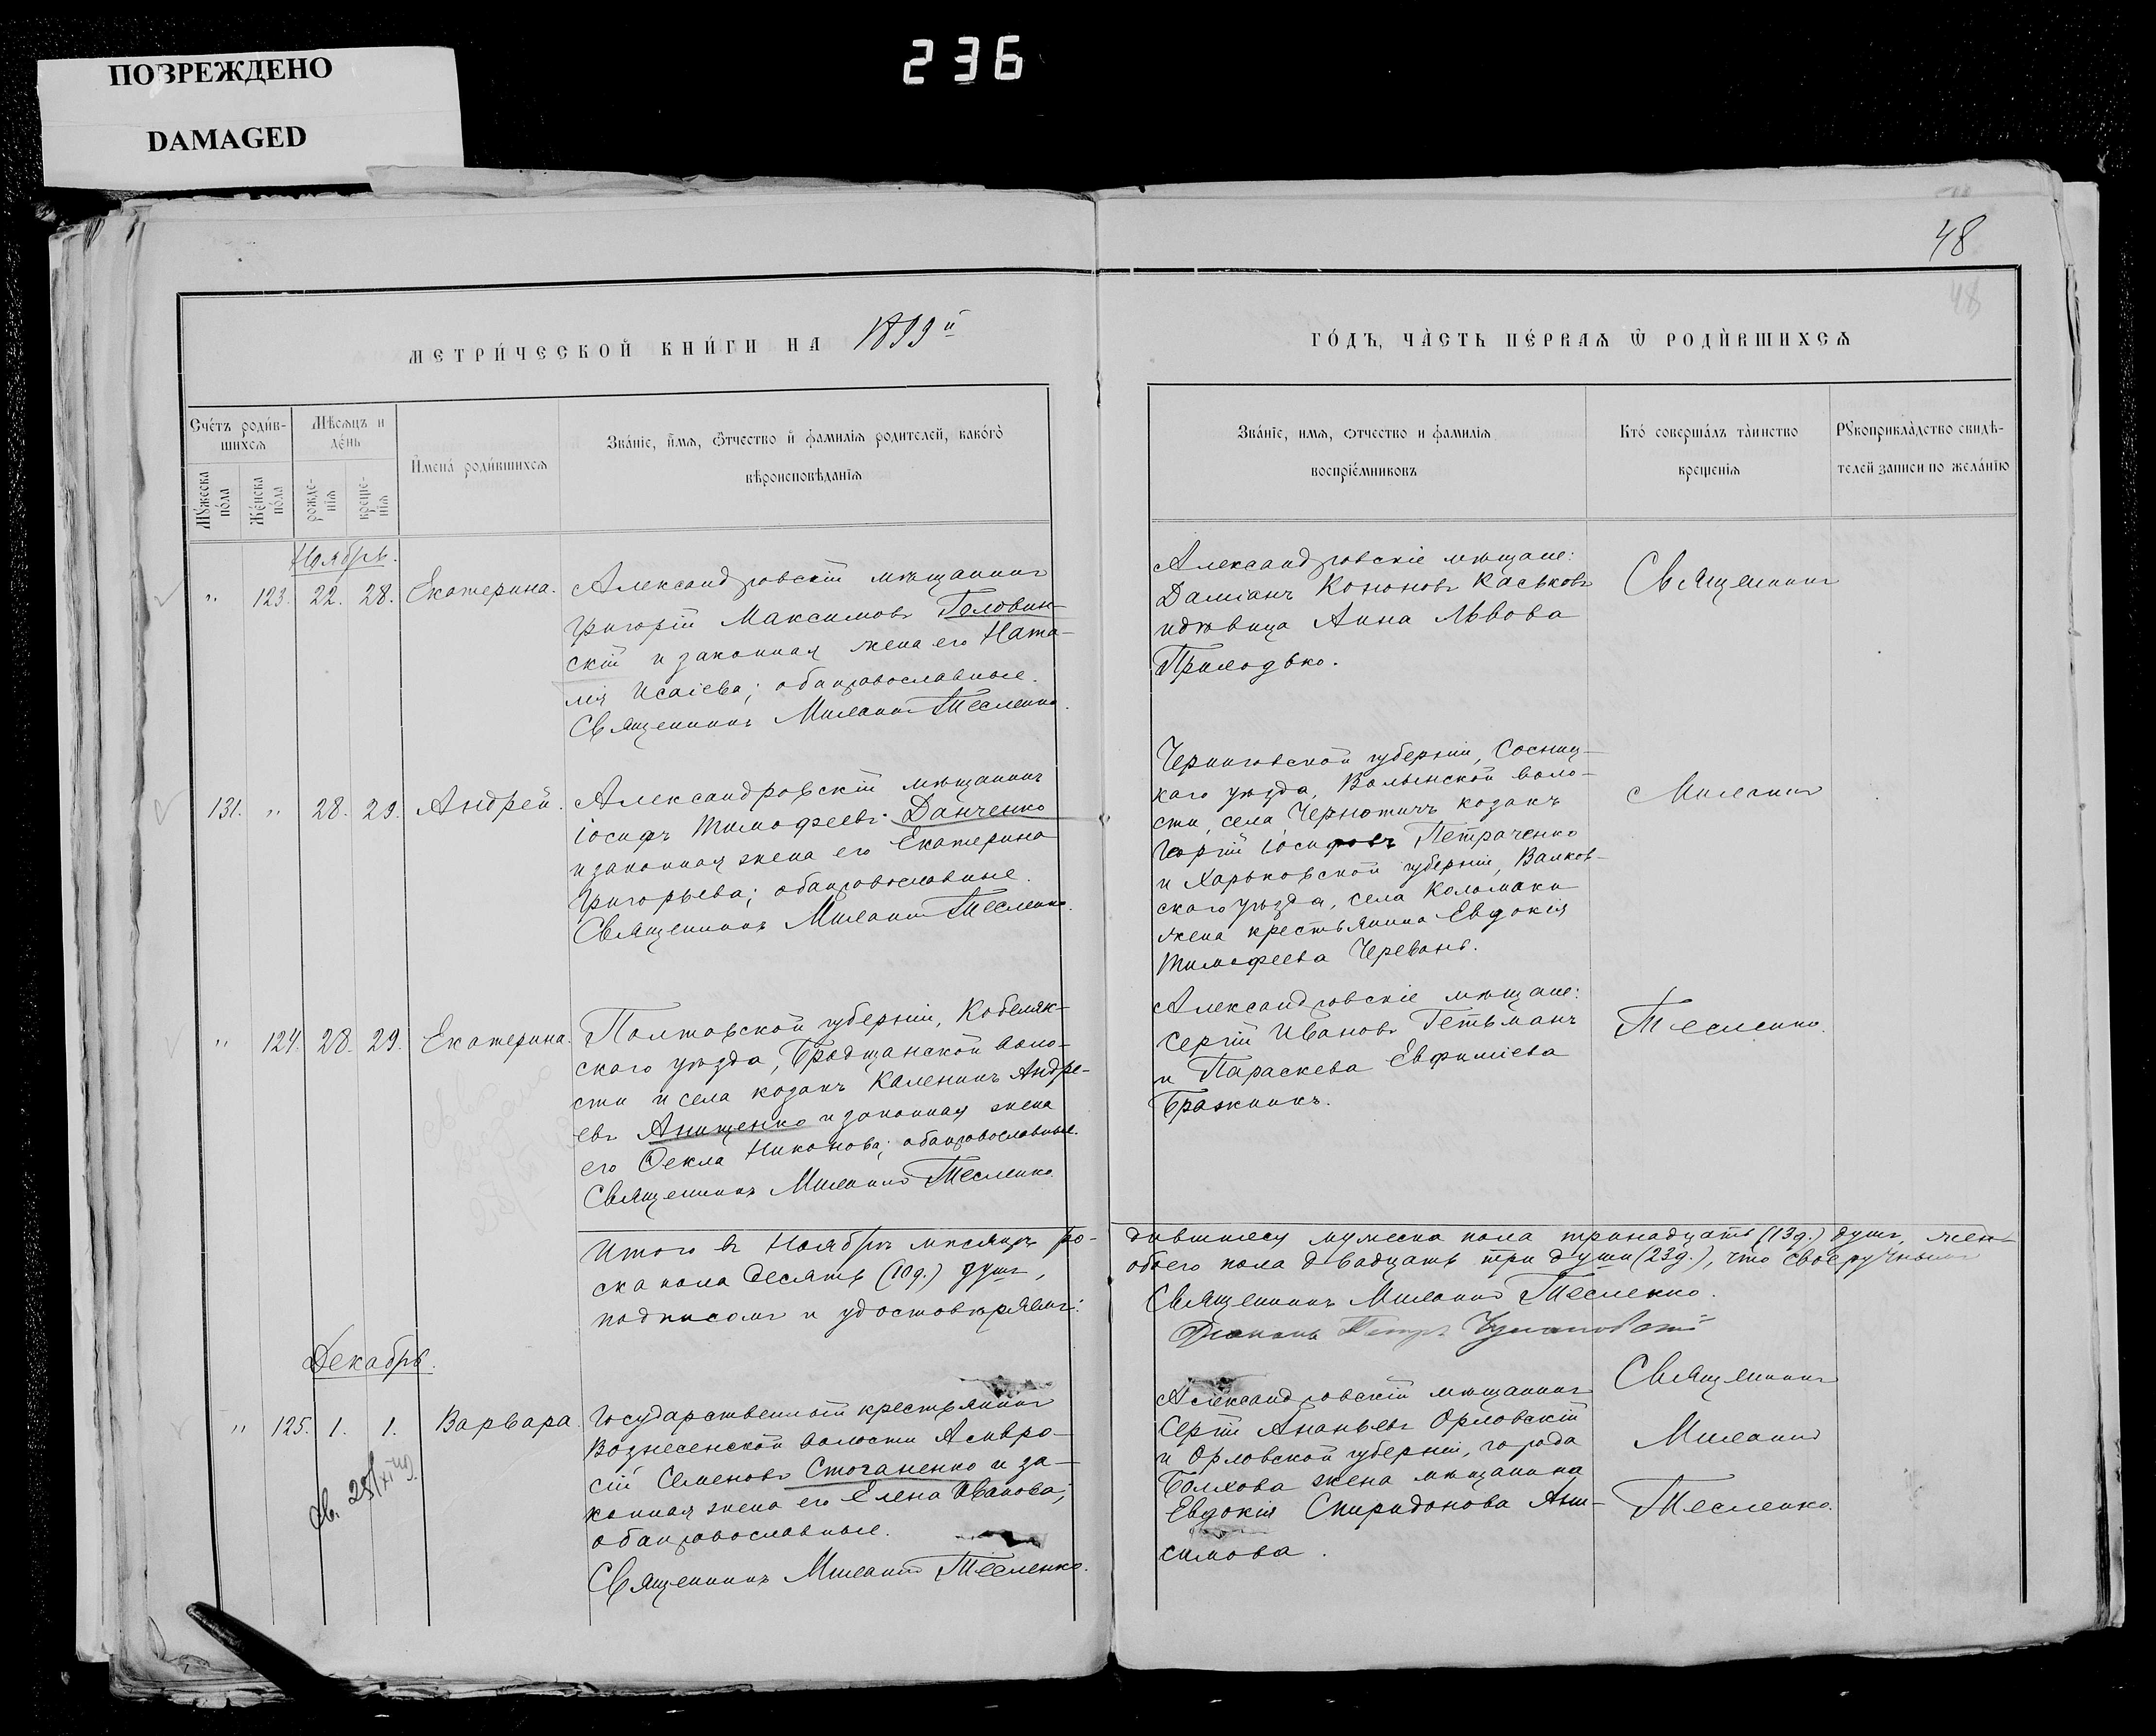 ПОВРЕЖДЕНО
DAMAGED
236
48
48
МЕТРИ́ЧЕСКОЙ КНИ́ГИ НА 1899й
ГО́ДЪ, ЧА̀СТЬ ПЕ́РВАѦ Ѿ РОДЍВШИХСѦ
Сче́тъ роди́в-
шихсѧ
Мꙋ́жеска по́ла
Же́нска по́ла
Мѣ́сѧцъ и
де́нь
рожде-
нїѧ
креще-
нїѧ
И҆мена̀ роди́вшихсѧ
Зва́нїе, и҆́мѧ, ѻ҆́тчество и҆ фамилїѧ родителей, како́гѡ
вѣроисповѣданїѧ
Зва́нїе, имѧ, ѻтчество и фамилїѧ
воспрїе́мниковъ
Кто́ соверша́лъ та́инство
крещенїѧ
Рꙋкоприкла́дство свидѣ-
телей записи по жела́нїю
Ноябрь.
" 123. 22. 28. Екатерина.
Александровскій мѣщанинъ
Григорій Максимовъ Головин-
скій и законная жена его Ната-
лія Исаіева; оба православные.
Священникъ Милоній Тесленко.
Александровскіе мѣщане:
Даміанъ Кононовъ Каськовъ
и дѣвица Анна Львова
Приходько.
Священникъ
131. " 28. 29. Андрей.
Александровскій мѣщанинъ
Іосифъ Тимофеевъ Данченко
и законная жена его Екатерина
Григорьева; оба православные.
Священникъ Милоній Тесленко.
Черниговской губерніи, Сосниц-
каго уѣзда, Волынской воло-
сти, села Чернотичъ козакъ
Георгій Іосифовъ Петраченко
и Харьковской губерніи, Валков-
скаго уѣзда, села Коломака
жена крестьянина Евдокія
Тимофеева Черевань.
Милоній
" 124. 28. 29. Екатерина.
Полтавской губерніи, Кобеляк-
скаго уѣзда, Бродщанской воло-
сти и села козакъ Каленикъ Андре-
евъ Анищенко и законная жена
его Ѳекла Никонова; оба православные.
Священникъ Милоній Тесленко.
Александровскіе мѣщане:
Сергій Ивановъ Гетьманъ
и Параскева Евфиміева
Бражникъ.
Тесленко.
Итого въ Ноябрѣ мѣсяцѣ ро-
дившихся мужеска пола тринадцать (13 д.) душъ, жен-
ска пола десять (10 д.) душъ,
обоего пола двадцать три души (23 д.), что своеручнымъ
подписомъ и удостовѣряемъ:
Священникъ Милоній Тесленко.
Діаконъ Петръ
Декабрь.
" 125. 1. 1. Варвара.
Государственный крестьянинъ
Вознесенской волости Амвро-
сій Семеновъ Стоганенко и за-
конная жена его Елена Иванова;
оба православные.
Священникъ Милоній Тесленко.
Александровскій мѣщанинъ
Сергій Ананьевъ Орловскій
и Орловской губерніи, города
Болхова жена мѣщанина
Евдокія Спиридонова Ани-
симова.
Священникъ
Милоній
Тесленко.